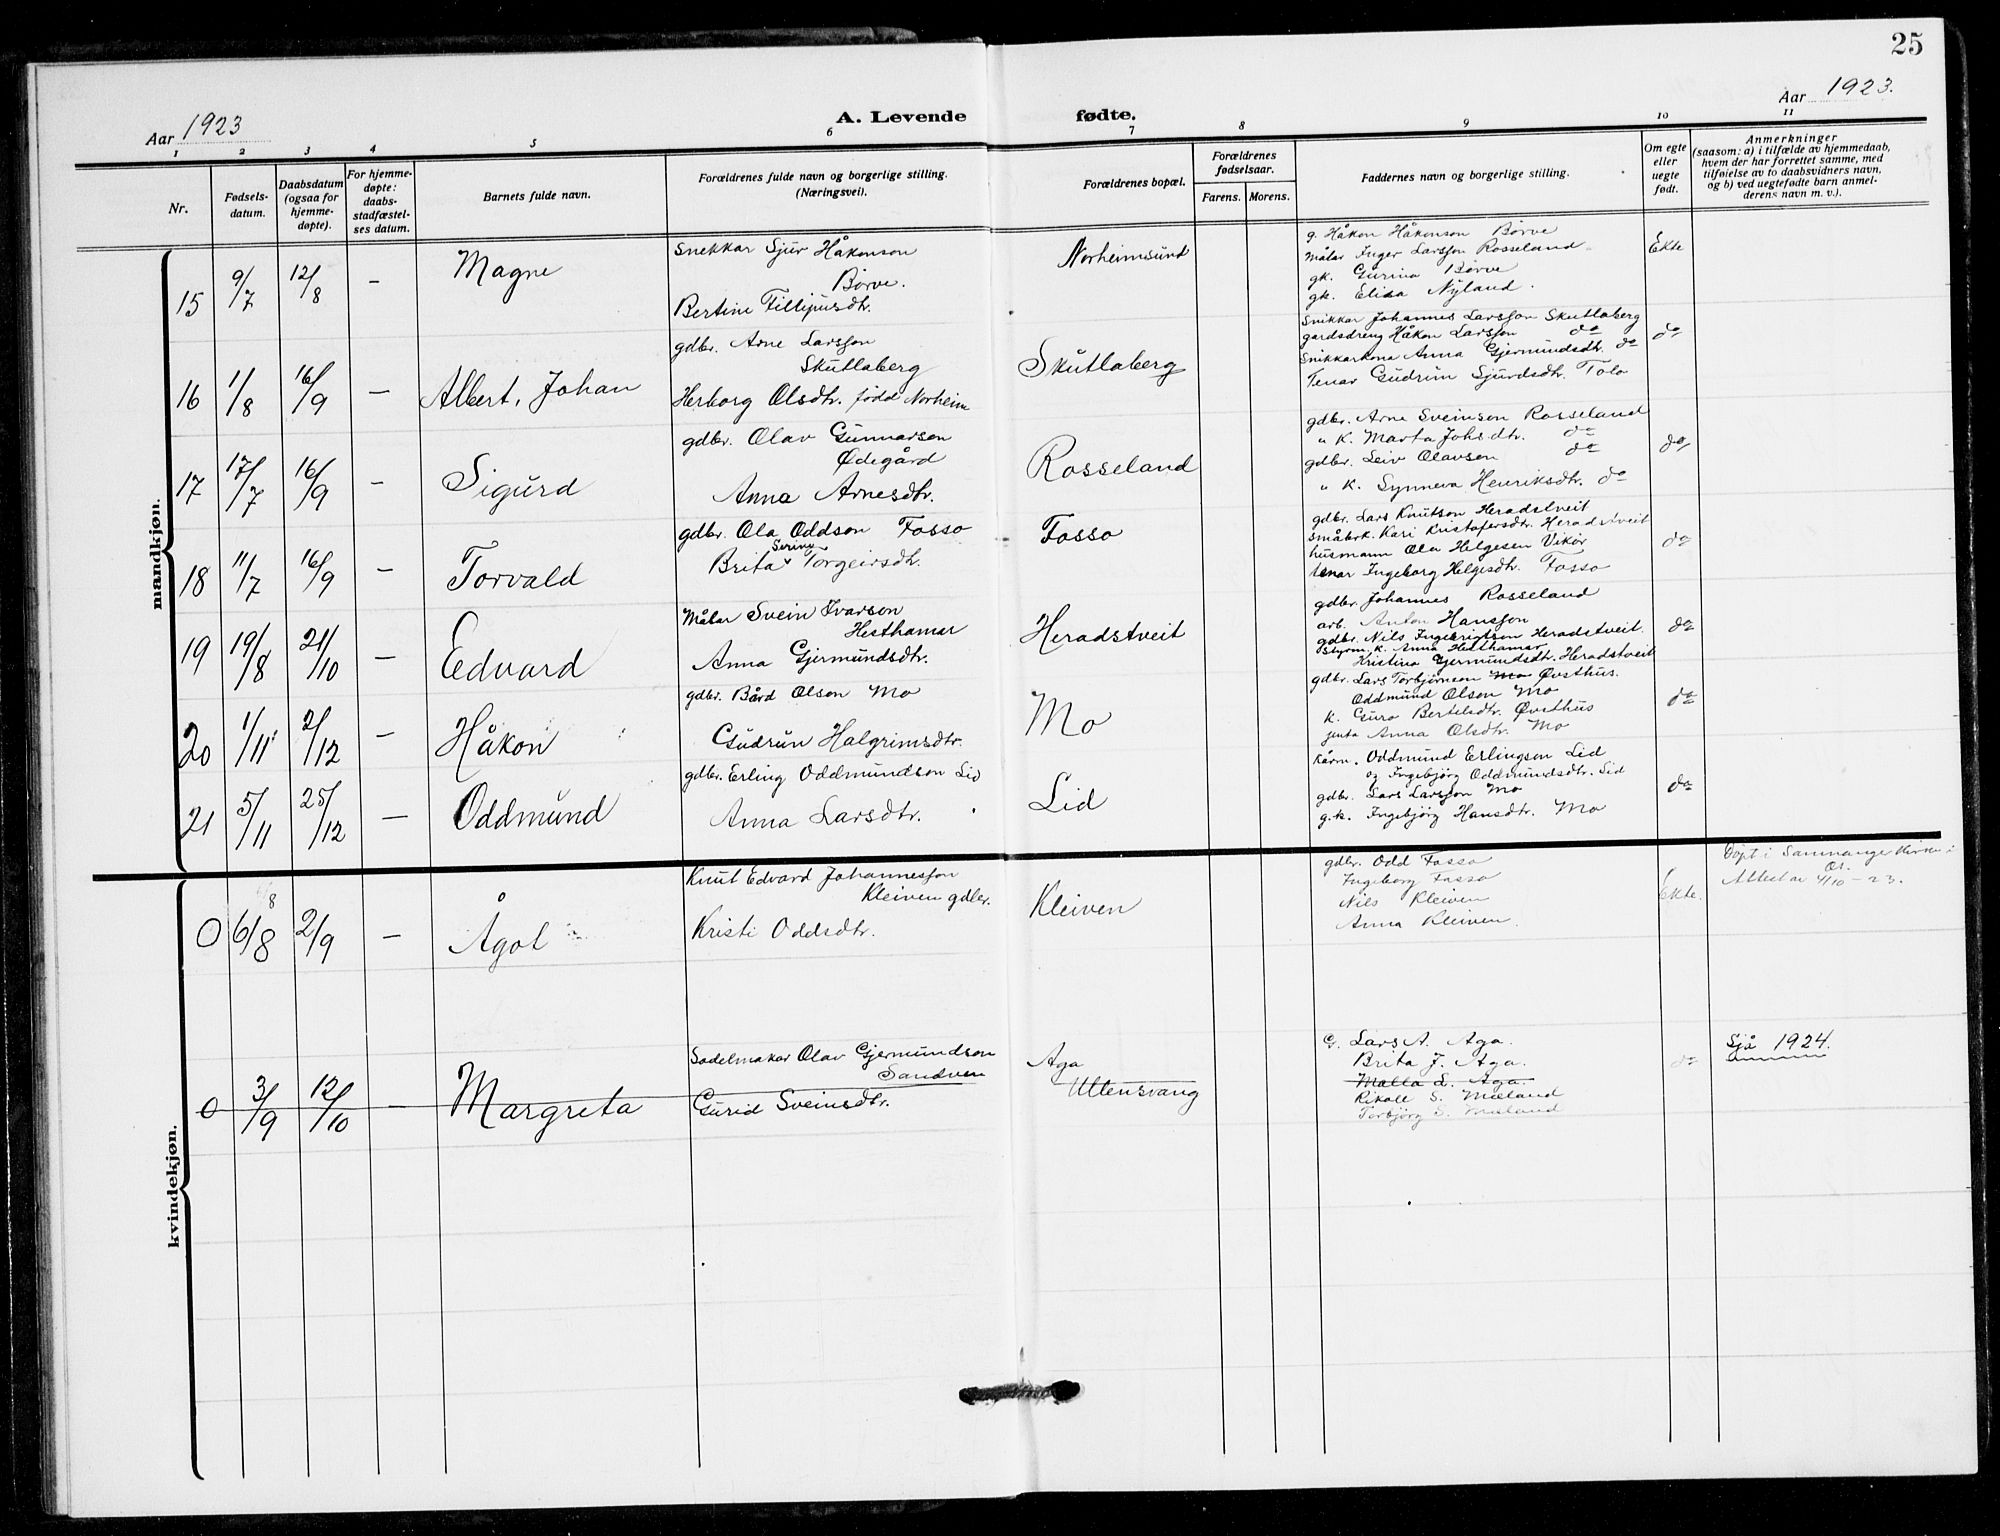 25
Aar 1923
A. Levende fødte.
Aar 1923.
1 2 3 4 5 6 7 8 9 10 11
Nr.
Fødsels-
datum.
Daabsdatum
(ogsaa for
hjemme-
døpte).
For hjemme-
døpte:
daabs-
stadfæstel-
ses datum.
Barnets fulde navn.
Forældrenes fulde navn og borgerlige stilling.
(Næringsvei).
Forældrenes bopæl.
Forældrenes
fødselsaar.
Farens. Morens.
Faddernes navn og borgerlige stilling.
Om egte
eller
uegte
født.
Anmerkninger
(saasom: a) i tilfælde av hjemmedaab,
hvem der har forrettet samme, med
tilføielse av to daabsvidners navn,
og b) ved uegtefødte barn anmel-
derens navn m. v.).
mandkjøn.
15 9/7 12/8 — Magne
Snekkar Sjur Håkonson
Børve.
Bertine Fillipusdtr.
Norheimsund
g. Håkon Håkonson Børve
Målar Inger Larsson Rosseland
gk. Gurina Børve
gk. Elisa Nyland.
Ekte
16 1/8 16/9 — Albert, Johan
gdbr. Arne Larsson
Skutlaberg
Herborg Olsdtr. født Norheim
Skutlaberg
Snikkar Johannes Larsson Skutlaberg
gardsdreng Håkon Larsson do
Snikkarkona Anna Gjermundsdtr. do
Tenar Gudrun Sjurdsdtr. Tolo
do
17 17/7 16/9 — Sigurd
gdbr. Olav Gunnarson
Ødegård
Anna Arnesdtr.
Rosseland
gdbr. Arne Sveinson Rosseland
" K. Marta Johs.dtr. do
gdbr. Leiv Olavson do
" K. Synneva Henriksdtr. do
do
18 11/7 16/9 — Torvald
gdbr. Ola Oddson Fosso
Serine
Brita Torgeirsdtr.
Fosso
gdbr. Lars Knutson Heradstveit
småbrk. Kari Kristofersdtr. Heradstveit
husmann Ola Helgesen Vikør
tenar Ingeborg Helgesdtr. Fosso
do
19 19/8 21/10 — Edvard
Målar Svein Ivarson
Hesthamar
Anna Gjermundsdtr.
Heradstveit
gdbr. Johannes Rosseland
arb. Anton Hansson
gdbr. Nils Ingebrigtson Heradstveit
styrm. k. Anna Hesthamar
Kristina Gjermundsdtr. Heradstveit
do
20 1/11 2/12 — Håkon
gdbr. Bård Olson Mo
Gudrun Halgrimsdtr.
Mo
gdbr. Lars Torbjørnson Mo Øvsthus.
Oddmund Olson Mo
k. Guro Bertelsdtr. Øvsthus
jenta Anna Olsdtr. Mo
do
21 5/11 25/12 — Oddmund
gdbr. Erling Oddmundson Lid
Anna Larsdtr.
Lid
Kårm. Oddmund Erlingson Lid
og Ingebjørg Oddmundsdtr. Lid
gdbr. Lars Larsson Mo
g.k. Ingebjørg Hansdtr. Mo
do
kvindekjøn.
0 6/8 2/9 — Ågot
Knut Edvard Johannesson
Kleiven gdbr.
Kristi Oddsdtr.
Kleiven
gdbr. Odd Fosso
Ingeborg Fosso
Nils Kleiven
Anna Kleiven.
Ekte.
Døpt i Samnanger Kirke i
Os.
Attest av 4/10 – 23.
0 3/9 12/10 — Margreta
Sadelmakar Olav Gjermundson
Sandven
Gurid Sveinsdtr.
Aga
Ullensvang
G. Lars A. Aga.
Brita J. Aga.
Malla L. Aga.
Rikoll S. Mæland
Torbjørg S. Mæland
do
Sjå 1924.